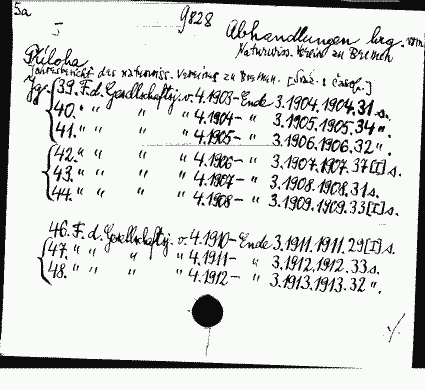 5a
9828
Abhandlungen hrg. vom
Naturwiss. Verein zu Bremen
Philoha
Jahresbericht des Naturwiss. Vereines zu Bremen.
Jg. 39. F. d. Gesellschaftsj. v. 4.1903 - Ende 3.1904.1904.31 s.
40. " " " " 4.1904 - " 3.1905.1905.34 ".
41. " " " " 4.1905 - " 3.1906.1906.32 ".
42. " " " " 4.1906 - " 3.1907.1907.37[I] s.
43. " " " " 4.1907 - " 3.1908.1908.31 s.
44. " " " " 4.1908 - " 3.1909.1909.33[I] s.
46. F. d. Gesellschaftsj. v. 4.1910 - Ende 3.1911.1911.29[I] s.
47. " " " " 4.1911 - " 3.1912.1912.33 s.
48. " " " " 4.1912 - " 3.1913.1913.32 ".